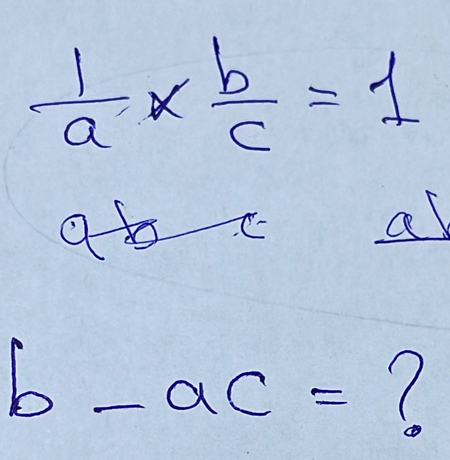 1/a × b/c = 1
abc
b - ac = ?